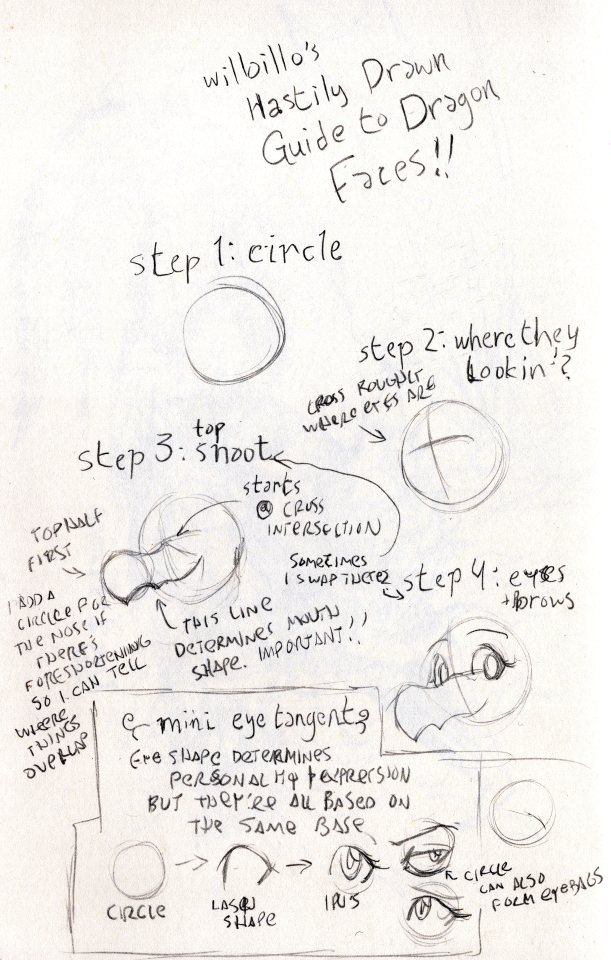 wilbillo's
Hastily Drawn
Guide to Dragon
Faces!!
step 1: circle
step 2: where they
lookin'?
CROSS ROUGHLY
WHERE EYES ARE
step 3: top snoot
starts
@ CROSS
INTERSECTION
TOP HALF
FIRST
I ADD A
CIRCLE FOR
THE NOSE IF
THERE'S
FORESHORTENING
SO I CAN TELL
WHERE
THINGS
OVERLAP
THIS LINE
DETERMINES MOUTH
SHAPE. IMPORTANT!!
SOMETIMES
I SWAP THESE 2
step 4: eyes
+ brows
mini eye tangent
EYE SHAPE DETERMINES
PERSONALITY + EXPRESSION
BUT THEY'RE ALL BASED ON
THE SAME BASE
CIRCLE
LASH
SHAPE
IRIS
CIRCLE
CAN ALSO
FORM EYEBAGS